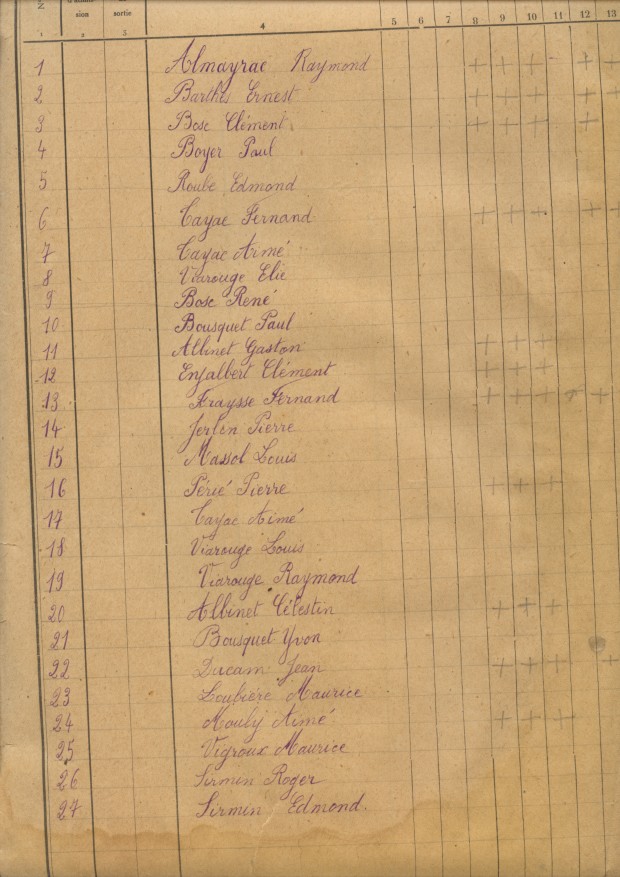 N d'admis- de
sion sortie 4 5 6 7 8 9 10 11 12 13
1 2 3
1 Almayrac Raymond + + + + +
2 Barthes Ernest + + + + +
3 Bosc Clément + + + +
4 Boyer Paul
5 Roube Edmond
6 Cayac Fernand + + + + +
7 Cayac Aimé
8 Viarouge Elie
9 Bosc René
10 Bousquet Paul
11 Albinet Gaston + + +
12 Enjalbert Clément + + +
13 Fraysse Fernand + + + + +
14 Pierre
15 Massol Louis
16 Périé Pierre + + +
17 Cayac Aimé
18 Viarouge Louis
19 Viarouge Raymond
20 Albinet Célestin + + +
21 Bousquet Yvon
22 Ducam Jean + + + +
23 Loubière Maurice
24 Mouly Aimé + + +
25 Vigroux Maurice
26 Sirmin Roger
27 Sirmin Edmond.